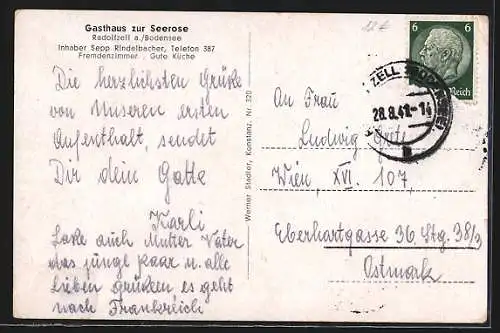 Gasthaus zur Seerose
Radolfzell a./Bodensee
Inhaber Sepp Rindelbacher, Telefon 387
Fremdenzimmer . Gute Küche
Die herzlichsten Grüße
von Unseren ersten
Aufenthalt, sendet
Dir dein Gatte
Karli
Lake auch Mutter Vater
das jüngl paar u. alle
Lieben grüßen es geht
nach Frankreich
Werner Stadler, Konstanz, Nr. 320
6 6
Reich
ZELL (BODENSEE)
28.8.41-14
An Frau
Ludwig
Wien, XVI. 107,
Eberhartgasse 36 Stg. 38/3
Ostmark